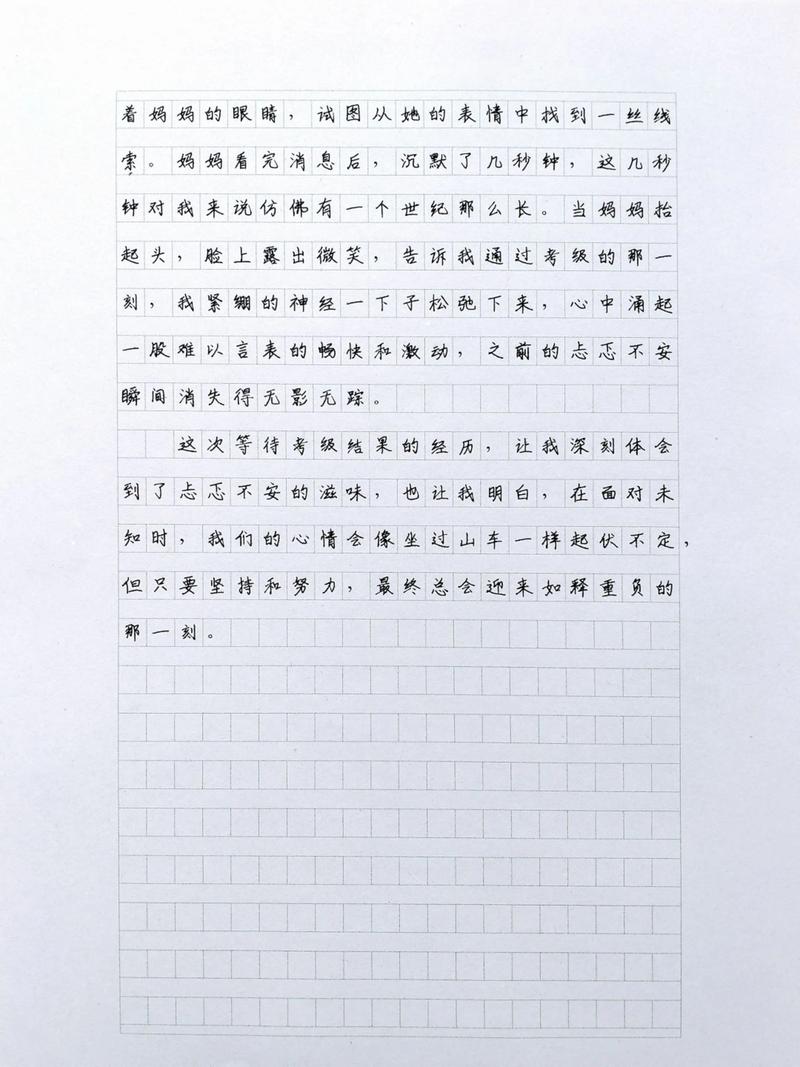 着妈妈的眼睛，试图从她的表情中找到一丝线
索。妈妈看完消息后，沉默了几秒钟，这几秒
钟对我来说仿佛有一个世纪那么长。当妈妈抬
起头，脸上露出微笑，告诉我通过考级的那一
刻，我紧绷的神经一下子松驰下来，心中涌起
一股难以言表的畅快和激动，之前的忐忑不安
瞬间消失得无影无踪。
这次等待考级结果的经历，让我深刻体会
到了忐忑不安的滋味，也让我明白，在面对未
知时，我们的心情会像坐过山车一样起伏不定，
但只要坚持和努力，最终总会迎来如释重负的
那一刻。